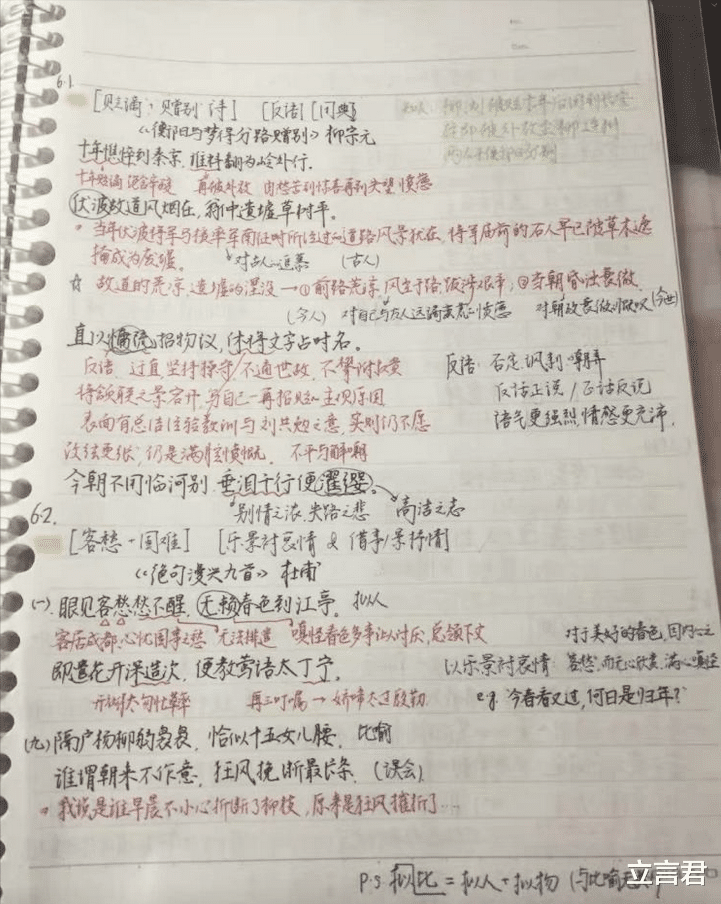 61.
[贬谪,赠别诗] [反语] [同典]
《衡阳与梦得分路赠别》 柳宗元
十年憔悴到秦京,谁料翻为岭外行。
十年贬谪 再被外放
伏波故道风烟在,翁仲遗墟草树平。
当年伏波将军马援率军南征时所经过的道路风景犹在,将军庙前的石人早已被草木遮
掩成为废墟。 对古人的追慕 (古人)
☆ 故道的荒凉,遗墟的湮没→①前路荒凉,风尘路饭涉艰辛;②当朝昏浊衰微.
(今人) 对自己与友人远谪蛮荒之愤懑 对朝政衰微的慨叹 (今世)
直以慵疏招物议,休将文字占时名。
反语:过直坚持操守/不通世故,不攀附权贵 反语:否定、讽刺、嘲弄
反话正说/正话反说
表面有总结经验教训与刘共勉之意,实则仍不愿 语气更强烈,情感更充沛.
改弦更张,仍是满腔愤慨. 不平与自嘲
今朝不用临河别,垂泪千行便濯缨。
别情之浓,失路之悲 高洁之志
62.
[客愁+国难] [乐景衬哀情 & 借事/景抒情]
《绝句漫兴九首》 杜甫
(一)眼见客愁愁不醒,无赖春色到江亭。 拟人
客居成都,心忧国事之愁 无法排遣 嗔怪春色多事, 总领下文
即遣花开深造次,便教莺语太丁宁。 以乐景衬哀情
对于美好的春色,因内心之
客愁,而无心欣赏,满心嗔怪
开的太匆忙草率 再三叮嘱→娇啼太过殷勤 e.g.今春看又过,何日是归年?
(九)隔户杨柳弱袅袅,恰似十五女儿腰. 比喻
谁谓朝来不作意,狂风挽断最长条. (误会)
我误是谁早晨不小心折断了柳枝,原来是狂风摧折了…
P.S.拟比=拟人+拟物 (与比喻
立言君